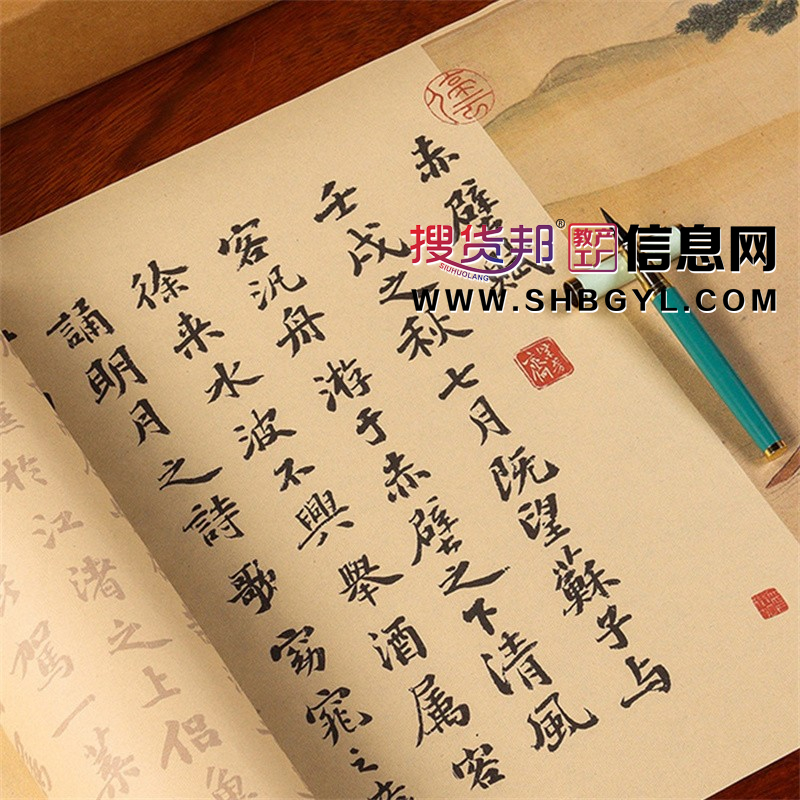 赤壁賦
壬戌之秋七月既望蘇子与
客汎舟游于赤壁之下清風
徐来水波不興舉酒属客
誦明月之詩歌窈窕之
於江渚之上侣魚
駕一葉
搜货邦®
SIUHUOLANG
教产
工厂
信息网
WWW.SHBGYL.COM